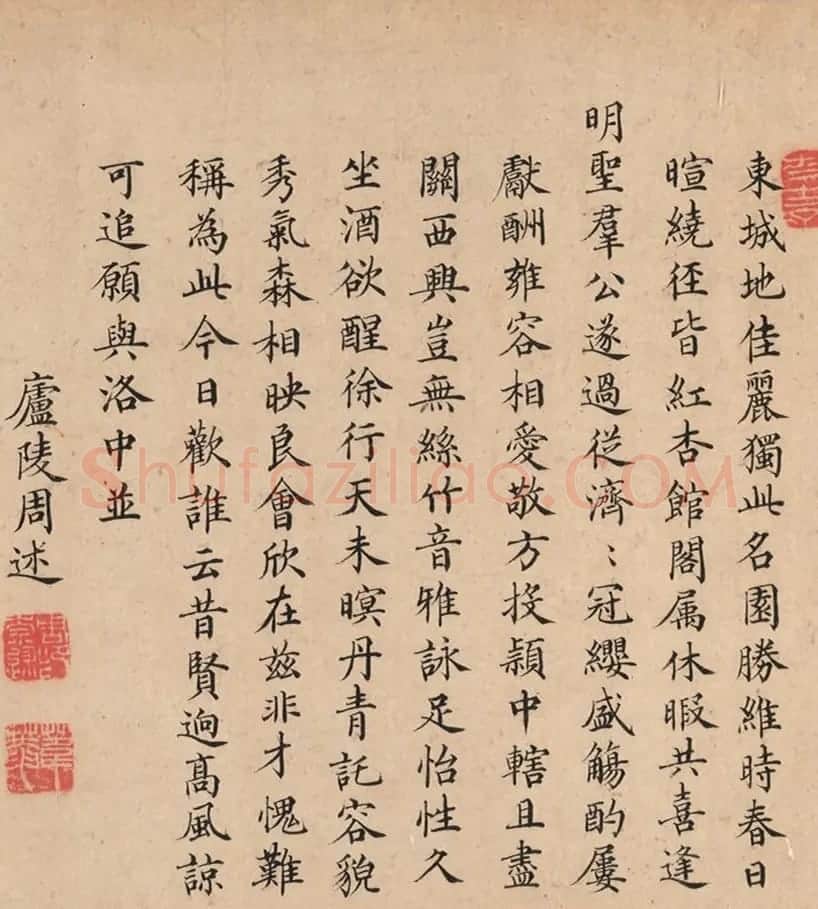 東城地佳麗獨此名園勝維時春日
暄繞徑皆紅杏館閣属休暇共喜逢
明聖羣公遂過從濟〻冠纓盛觴酌屢
獻酬雍容相愛敬方投潁中轄且盡
關西興豈無絲竹音雅詠足怡性久
坐酒欲醒徐行天未暝丹青託容貌
秀氣森相映良會欣在茲非才愧難
稱為此今日歡誰云昔賢逈高風諒
可追願與洛中並
廬陵周述
shufaziliao.com